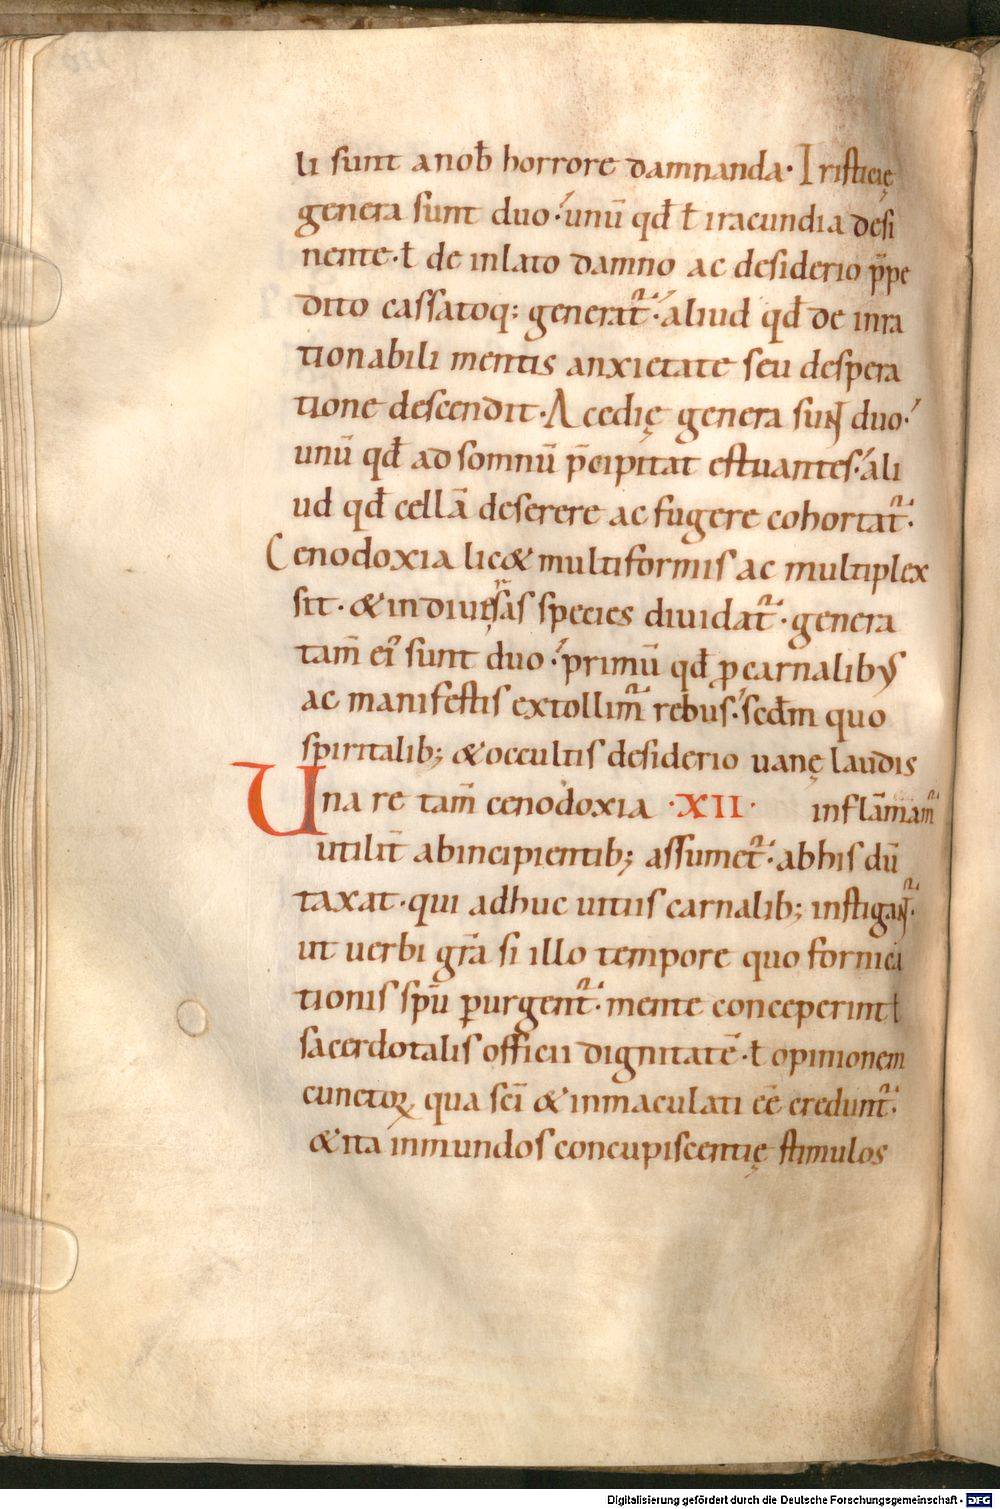 li sunt a nob̄ horrore damnanda· Tristicię
genera sunt duo·unū qđ ł iracundia desi
nente·ł de inlato damno ac desiderio p̄pe
dito cassatoq; generat᷑·aliud qđ de inra
tionabili mentis anxietate seu despera
tione descendit·Acedię genera sunt duo·
unū qđ ad somnū p̄cipitat estuantes·ali
ud qđ cellā deserere ac fugere cohortat᷑·
Cenodoxia lic& multiformis ac multiplex
sit·& in diuersas species diuidat᷑·genera
tam̄ ei᾽ sunt duo·primū qđ ꝓ carnalibus
ac manifestis extollim᷑ rebus·scđm quo
spiritalib; & occultis desiderio uanę laudis
inflām̄am᷑
Una re tam̄ cenodoxia ·XII·
utilit̄ ab incipientib; assumet᷑·ab his dū
taxat·qui adhuc uitiis carnalib; instigant᷑·
ut uerbi gr̄a si illo tempore quo fornica
tionis sp̄u ꝑurgent᷑·mente conceperint ł
sacerdotalis officii dignitatē·ł opinionem
cunctoꝝ qua sc̄i & inmaculati eē credunt᷑·
& ita inmundos concupiscentię stimulos
Digitalisierung gefördert durch die Deutsche Forschungsgemeinschaft - DFG